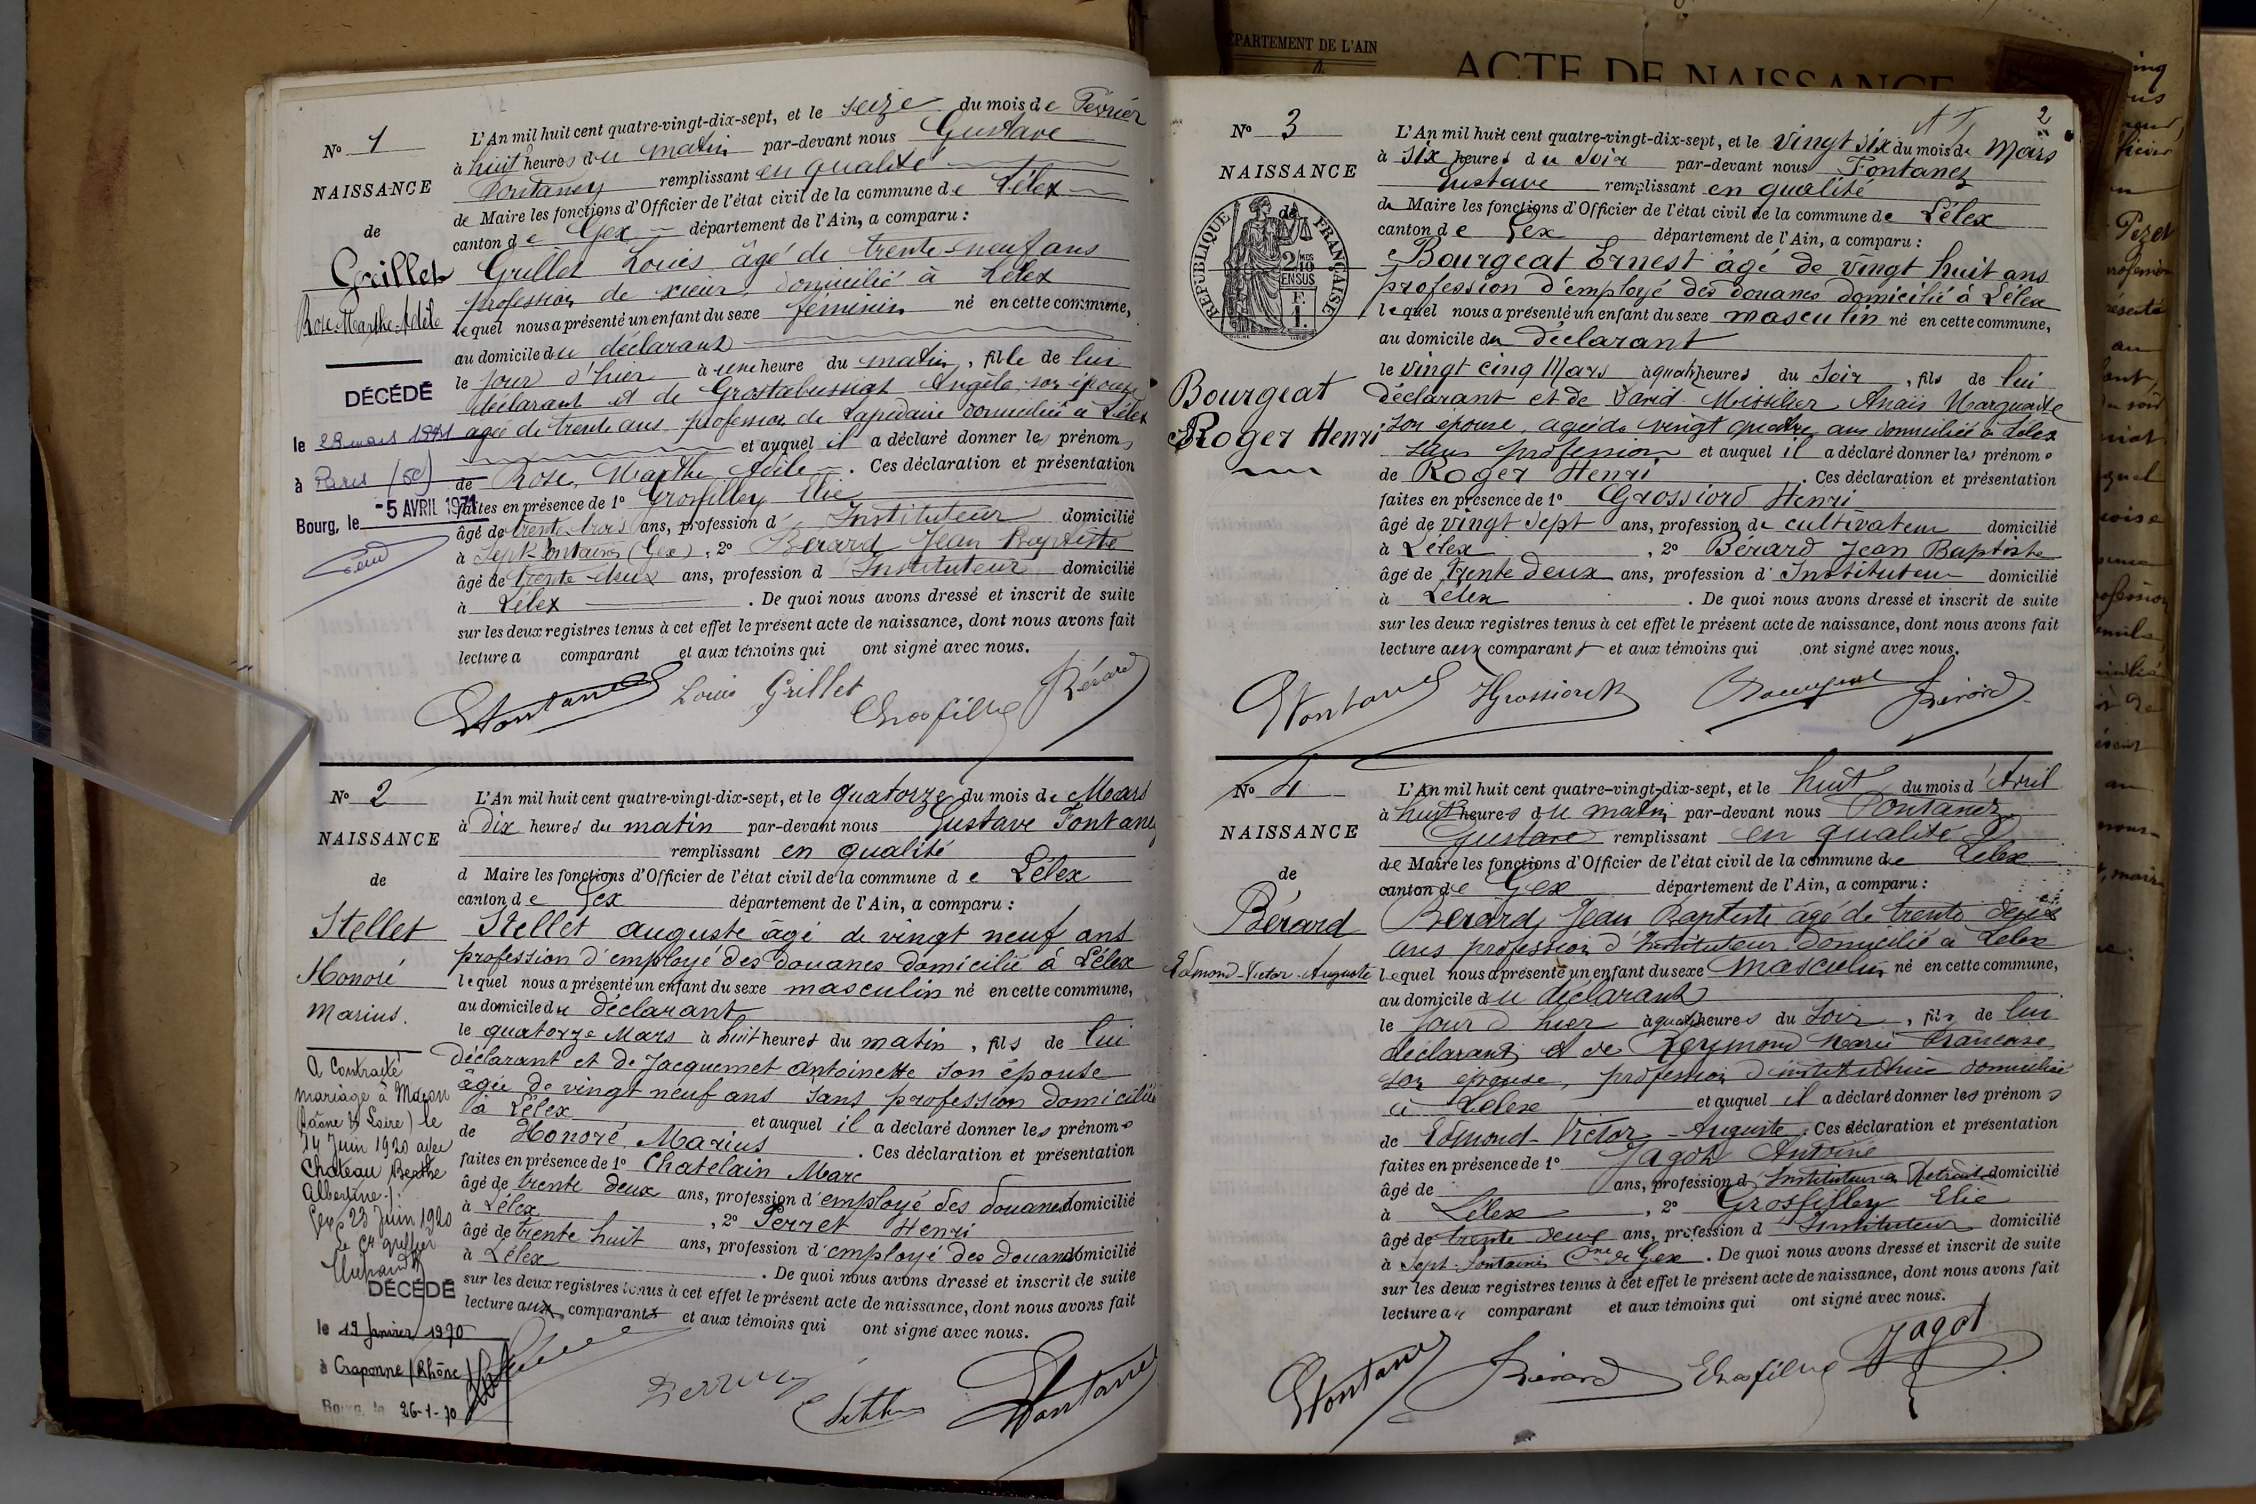 N° 1
NAISSANCE
de
Grillet
Rose-Marthe-Adèle
DÉCÉDÉ
le 28 mars 1971
à Paris (5e)
Bourg, le -5 AVRIL 1971
L'An mil huit cent quatre-vingt-dix-sept, et le seize du mois de Février
à huit heures du matin par-devant nous Gustave
Fontanez remplissant en qualité
de Maire les fonctions d'Officier de l'état civil de la commune de Lélex
canton de Gex département de l'Ain, a comparu :
Grillet Louis âgé de trente-neuf ans
profession de domicilié à Lélex
lequel nous a présenté un enfant du sexe féminin né en cette commune,
au domicile du déclarant
le jour d'hier à une heure du matin, fille de lui
déclarant et de Grostabussiat Angèle son épouse
agée de trente ans profession de Lapidaire domiciliée à Lélex
et auquel il a déclaré donner les prénoms
de Rose, Marthe, Adèle. Ces déclaration et présentation
faites en présence de 1° Grosfilley Elie
âgé de trente-trois ans, profession d' Instituteur domicilié
à Septfontaines (Gex), 2° Bérard Jean Baptiste
âgé de trente-deux ans, profession d' Instituteur domicilié
à Lélex. De quoi nous avons dressé et inscrit de suite
sur les deux registres tenus à cet effet le présent acte de naissance, dont nous avons fait
lecture a comparant et aux témoins qui ont signé avec nous.
GFontanez Louis Grillet EGrosfilley Bérard
N° 2
NAISSANCE
de
Stellet
Honoré
Marius.
A contracté
mariage à Macon
(Saône & Loire) le
14 Juin 1920 avec
Chateau Berthe
Albertine.
Gex 23 Juin 1920
Le Cs greffier
DÉCÉDÉ
le 19 janvier 1970
à Craponne (Rhône)
Bourg, le 26-1-70
L'An mil huit cent quatre-vingt-dix-sept, et le quatorze du mois de Mars
à dix heures du matin par-devant nous Gustave Fontanez
remplissant en qualité
d Maire les fonctions d'Officier de l'état civil de la commune de Lélex
canton de Gex département de l'Ain, a comparu :
Stellet auguste âgé de vingt neuf ans
profession d'employé des douanes domicilié à Lélex
lequel nous a présenté un enfant du sexe masculin né en cette commune,
au domicile du déclarant
le quatorze Mars à huit heures du matin, fils de lui
déclarant et de Jacquemet Antoinette son épouse
âgée de vingt neuf ans sans profession domiciliée
à Lélex et auquel il a déclaré donner les prénoms
de Honoré Marius. Ces déclaration et présentation
faites en présence de 1° Chatelain Marc
âgé de trente deux ans, profession d'employé des douanes domicilié
à Lélex, 2° Perret Henri
âgé de trente huit ans, profession d'employé des douanes domicilié
à Lélex. De quoi nous avons dressé et inscrit de suite
sur les deux registres tenus à cet effet le présent acte de naissance, dont nous avons fait
lecture aux comparants et aux témoins qui ont signé avec nous.
GFontanez
DÉPARTEMENT DE L'AIN
ACTE DE NAISSANCE
2
N° 3
NAISSANCE
de
RÉPUBLIQUE FRANÇAISE
2/10 EN SUS
Bourgeat
Roger Henri
L'An mil huit cent quatre-vingt-dix-sept, et le vingt six du mois de Mars
à six heures du soir par-devant nous Fontanez
Gustave remplissant en qualité
de Maire les fonctions d'Officier de l'état civil de la commune de Lélex
canton de Gex département de l'Ain, a comparu :
Bourgeat Ernest âgé de vingt huit ans
profession d'employé des douanes domicilié à Lélex
lequel nous a présenté un enfant du sexe masculin né en cette commune,
au domicile du déclarant
le vingt cinq Mars à quatre heures du soir, fils de lui
déclarant et de David Missilier Anaïs Marguerite
son épouse, agée de vingt quatre ans domiciliée à Lélex
sans profession et auquel il a déclaré donner les prénoms
de Roger Henri. Ces déclaration et présentation
faites en présence de 1° Grossiord Henri
âgé de vingt sept ans, profession de cultivateur domicilié
à Lélex, 2° Bérard Jean Baptiste
âgé de trente deux ans, profession d' Instituteur domicilié
à Lélex. De quoi nous avons dressé et inscrit de suite
sur les deux registres tenus à cet effet le présent acte de naissance, dont nous avons fait
lecture aux comparant et aux témoins qui ont signé avec nous.
GFontanez HGrossiord Bourgeat Bérard
N° 4
NAISSANCE
de
Bérard
Edmond-Victor-Auguste
L'An mil huit cent quatre-vingt-dix-sept, et le huit du mois d'Avril
à huit heures du matin par-devant nous Fontanez
Gustave remplissant en qualité
de Maire les fonctions d'Officier de l'état civil de la commune de Lélex
canton de Gex département de l'Ain, a comparu :
Bérard, Jean Baptiste âgé de trente deux
ans profession d'Instituteur domicilié à Lélex
lequel nous a présenté un enfant du sexe masculin né en cette commune,
au domicile du déclarant
le jour d'hier à quatre heures du soir, fils de lui
déclarant et de Reymond Marie Françoise
son épouse, profession d'institutrice domiciliée
à Lélex et auquel il a déclaré donner les prénoms
de Edmond-Victor-Auguste. Ces déclaration et présentation
faites en présence de 1° Jagot Antoine
âgé de ans, profession d'Instituteur en Retraite domicilié
à Lélex, 2° Grosfilley Elie
âgé de trente deux ans, profession d' Instituteur domicilié
à Sept-Fontaines Cne de Gex. De quoi nous avons dressé et inscrit de suite
sur les deux registres tenus à cet effet le présent acte de naissance, dont nous avons fait
lecture au comparant et aux témoins qui ont signé avec nous.
GFontanez Bérard EGrosfilley Jagot